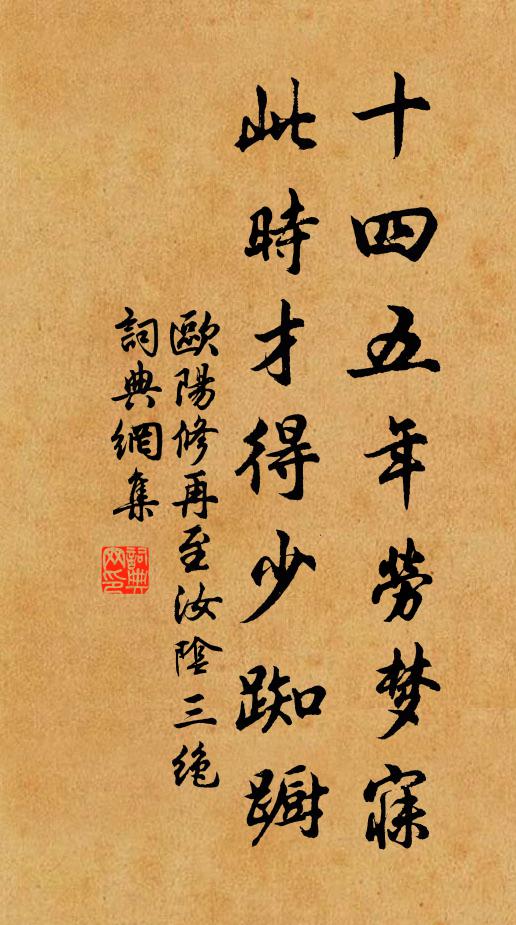 十四五年劳梦寐
此時才得少踟蹰
歐陽修再至汝陰三绝
詞典網集
詞典
网印